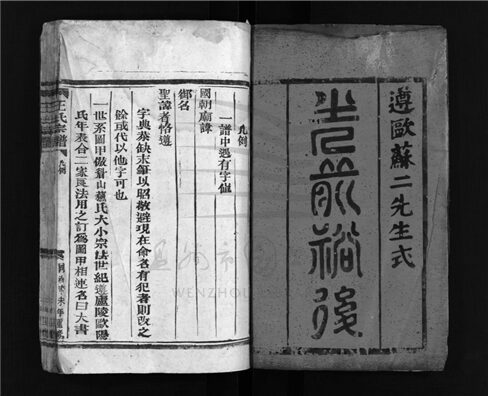 遵歐蘇二先生式
光前裕後
凡例
一譜中遇有字值
國朝廟諱
御名
聖諱者恪遵
字典恭缺末筆以昭敬避現在命名有犯者則改之
餘或代以他字可也
一世系圖甲倣眉山蘇氏大小宗法世紀遵廬陵歐陽
氏年表合二家良法用之訂為圖甲相連名曰大書
王氏宗譜
凡例
WENZHOU